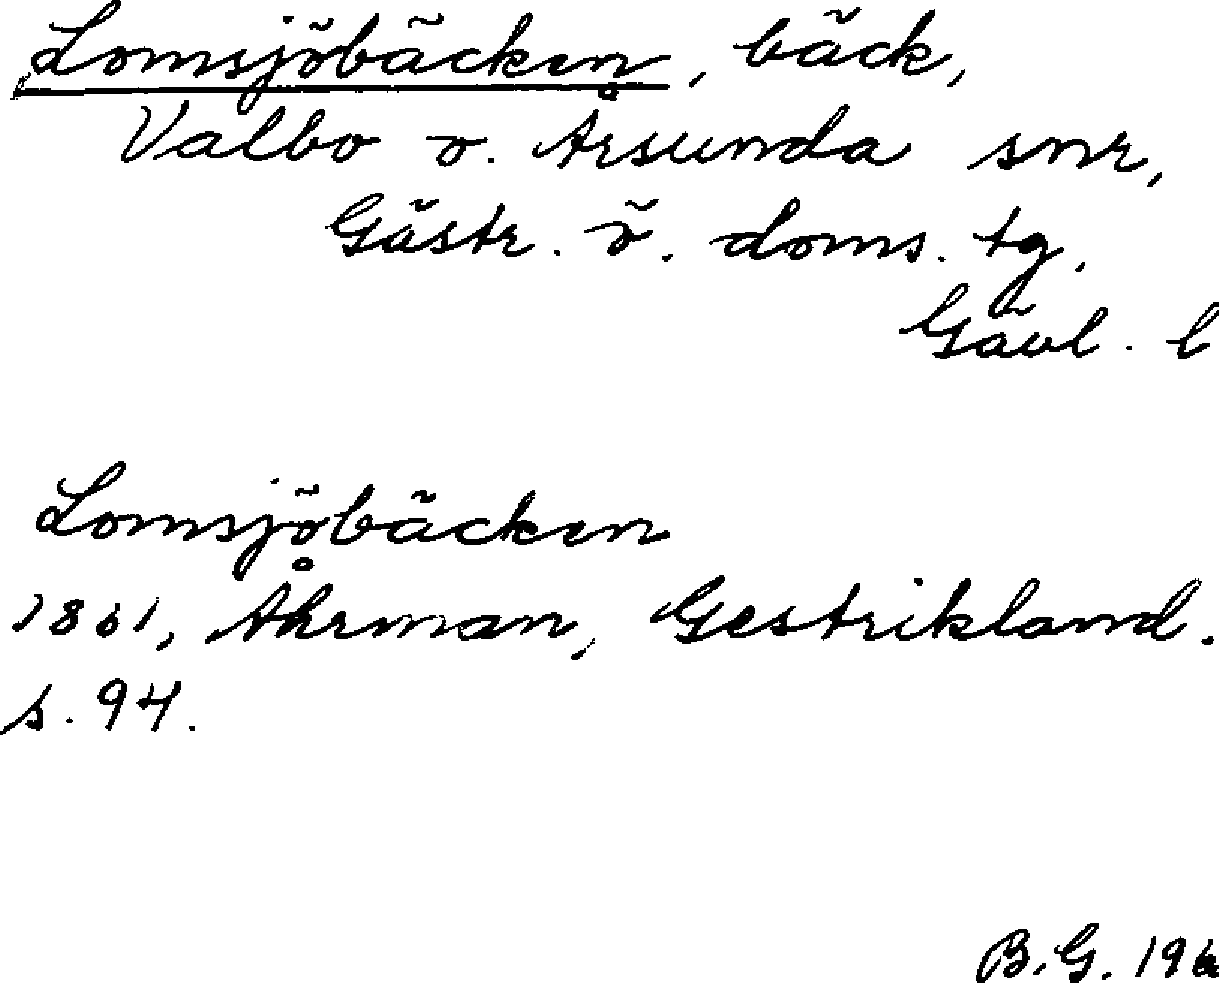 Lomsjöbäcken, bäck,
Valbo o. Årsunda snr,
Gästr. ö. doms. tg.
Gävl. l
Lomsjöbäcken
1861, Åhrman, Gestrikland.
s. 94.
B.G. 196